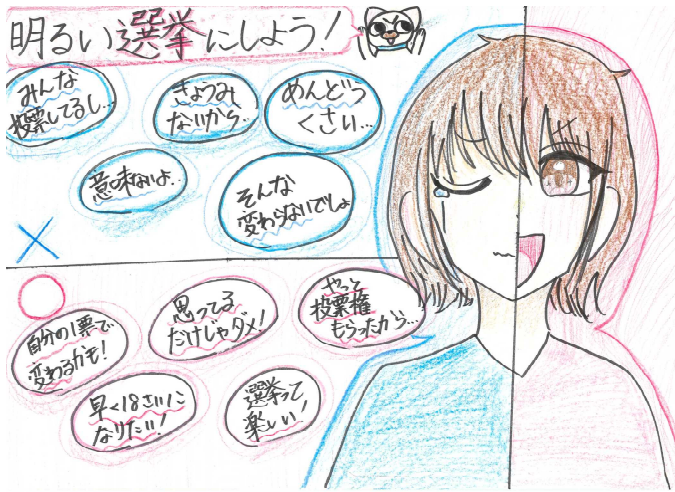 明るい選挙にしよう!
みんな
投票してるし…
きょうみ
ないから…
めんどう
くさい…
意味ないよ…
そんな
変わらないでしょ
自分の1票で
変わるかも!
思ってる
だけじゃダメ!
やっと
投票権
もらったから…
早く18さいに
なりたい!
選挙って
楽しい!